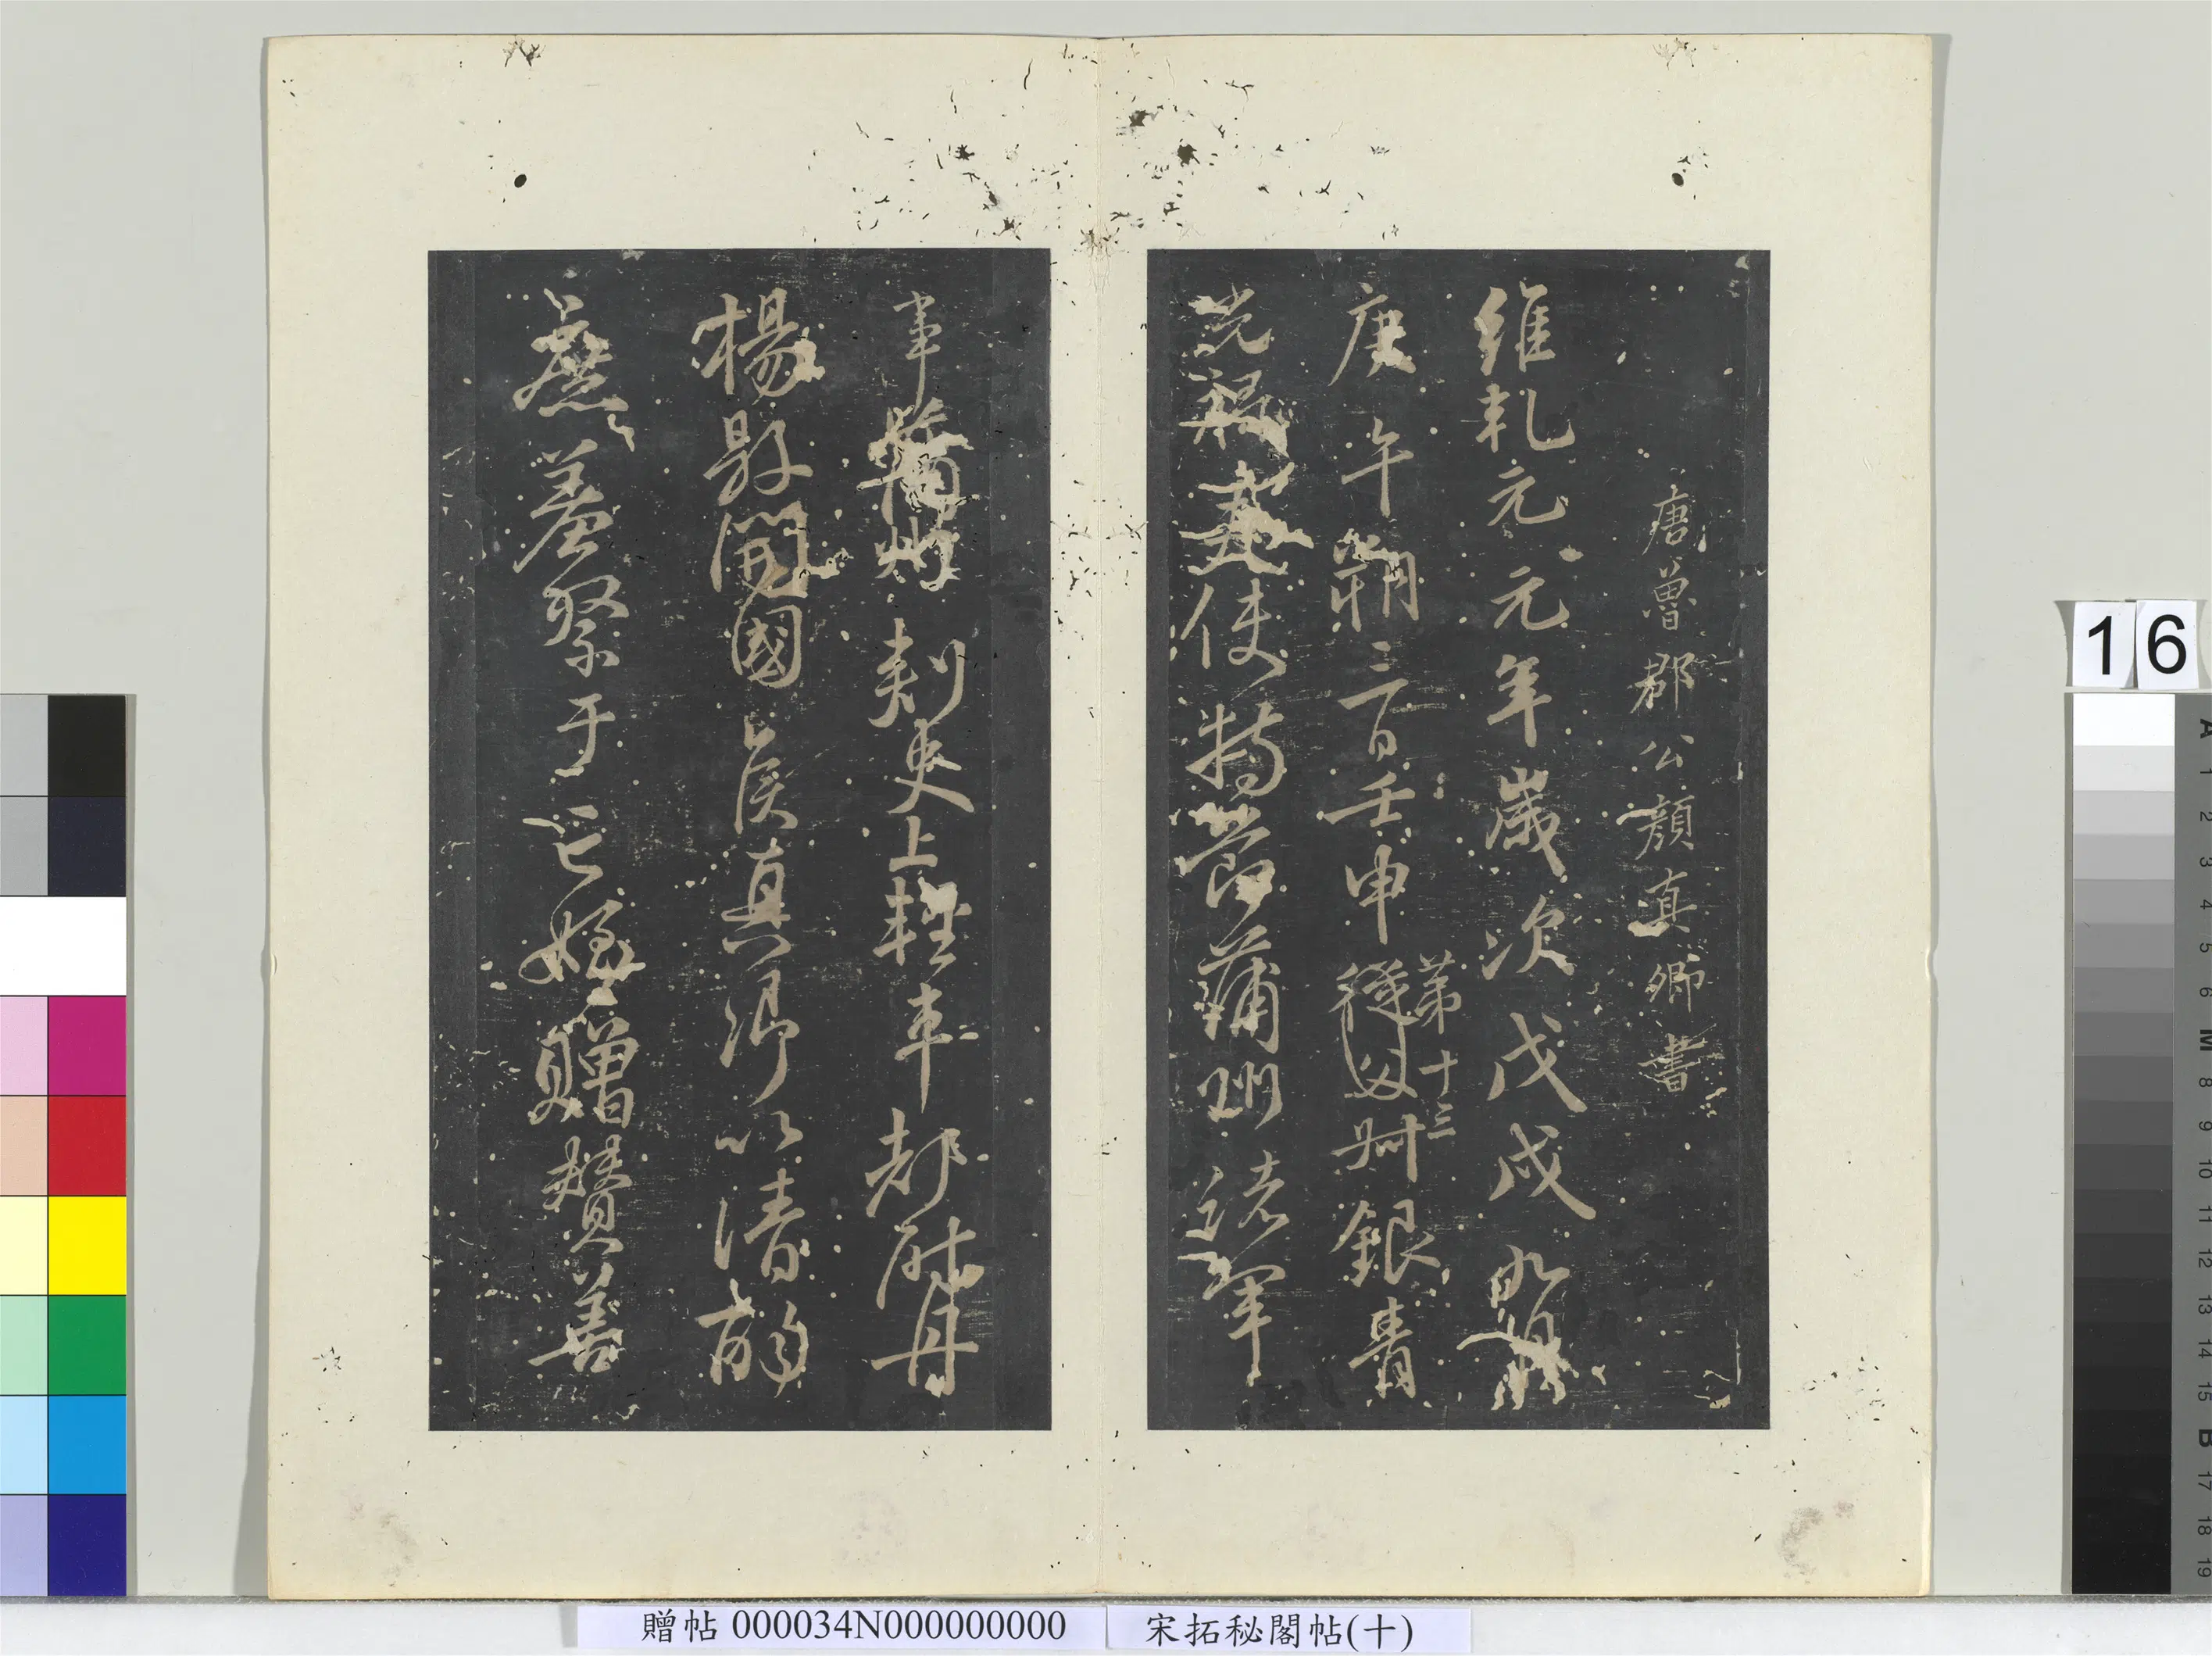 唐魯郡公顏真卿書
維乹元元年歲次戊戌九月
庚午朔三日壬申第十三從父叔銀青
光祿夫使持節蒲州諸軍
事蒲州刺史上輕車都尉丹
楊縣開國侯真卿以清酌
庶羞祭于亡姪贈贊善
16
A 1 2 3 4 5 6 M 8 9 10 11 12 13 14 15 B 17 18 19
贈帖 000034N000000000
宋拓秘閣帖(十)